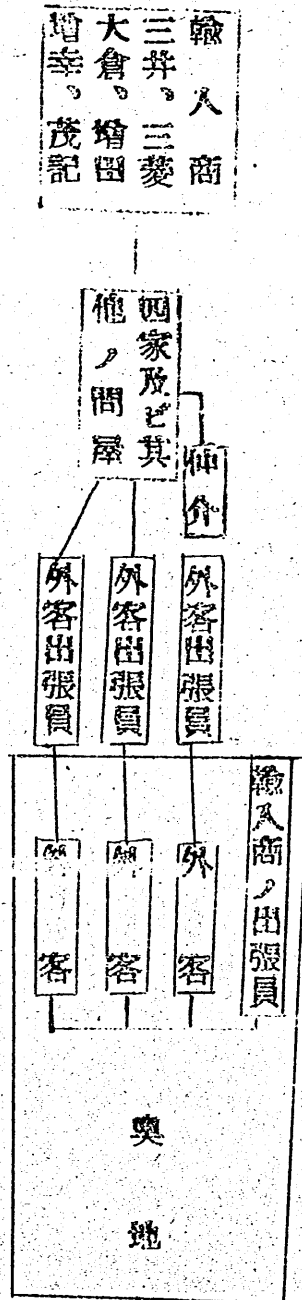 輸入商
三井、三菱
大倉、増田
増幸、茂記
四家及ビ其
他ノ問屋
仲介
外客出張員
外客出張員
外客出張員
輸入商ノ出張員
外客
外客
外客
奥地